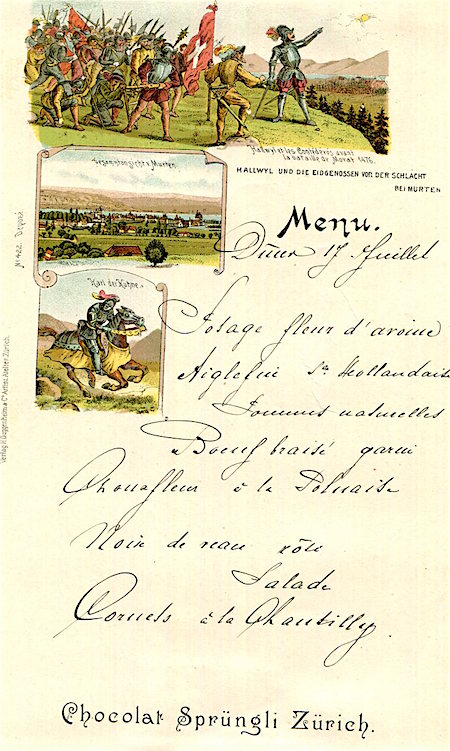 Hallwyl et les Confédérés avant
la bataille de Morat 1476.
HALLWYL UND DIE EIDGENOSSEN VOR DER SCHLACHT
BEI MURTEN
Gesammtansicht v. Murten.
Karl der Kühne.
No 422. Déposé.
Verlag R. Guggenheim & Co Artist. Atelier Zürich.
Menu.
Dîner 17 Juillet
Potage fleur d'avoine
Aiglefin Sce Hollandaise
Pommes naturelles
Boeuf braisé garni
Chouxfleur à la Polnaise
Noix de veau rôti
Salade
Cornets à la Chantilly
Chocolat Sprüngli Zürich.